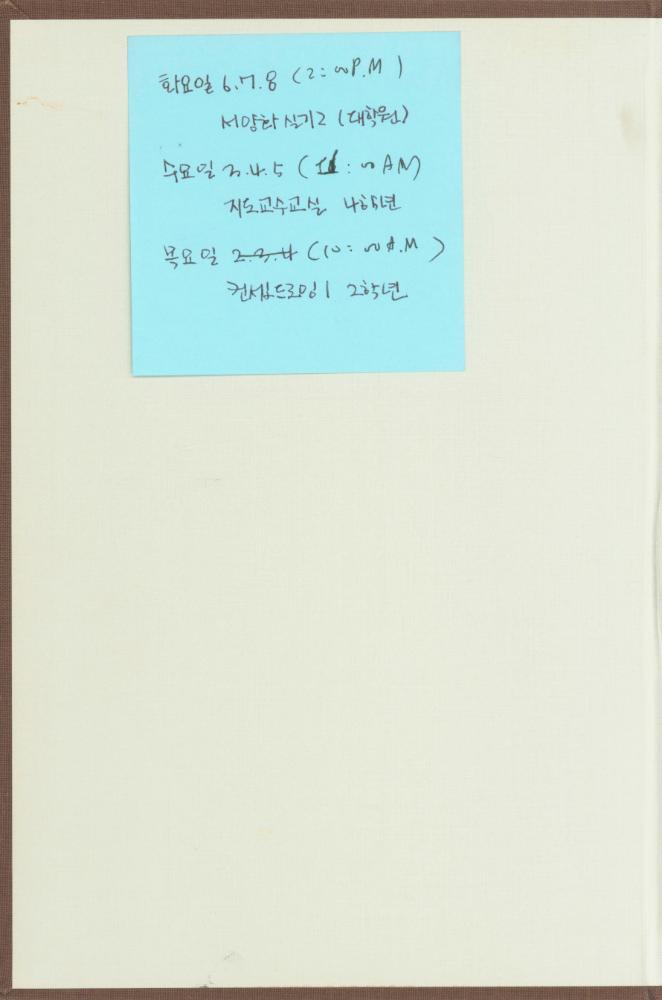 화요일 6.7.8 (2:00 P.M)
서양화실기2 (대학원)
수요일 3.4.5 (11:00 AM)
지도교수교실 4학년
목요일 2.3.4 (10:00 A.M)
컨셉드로잉1 2학년